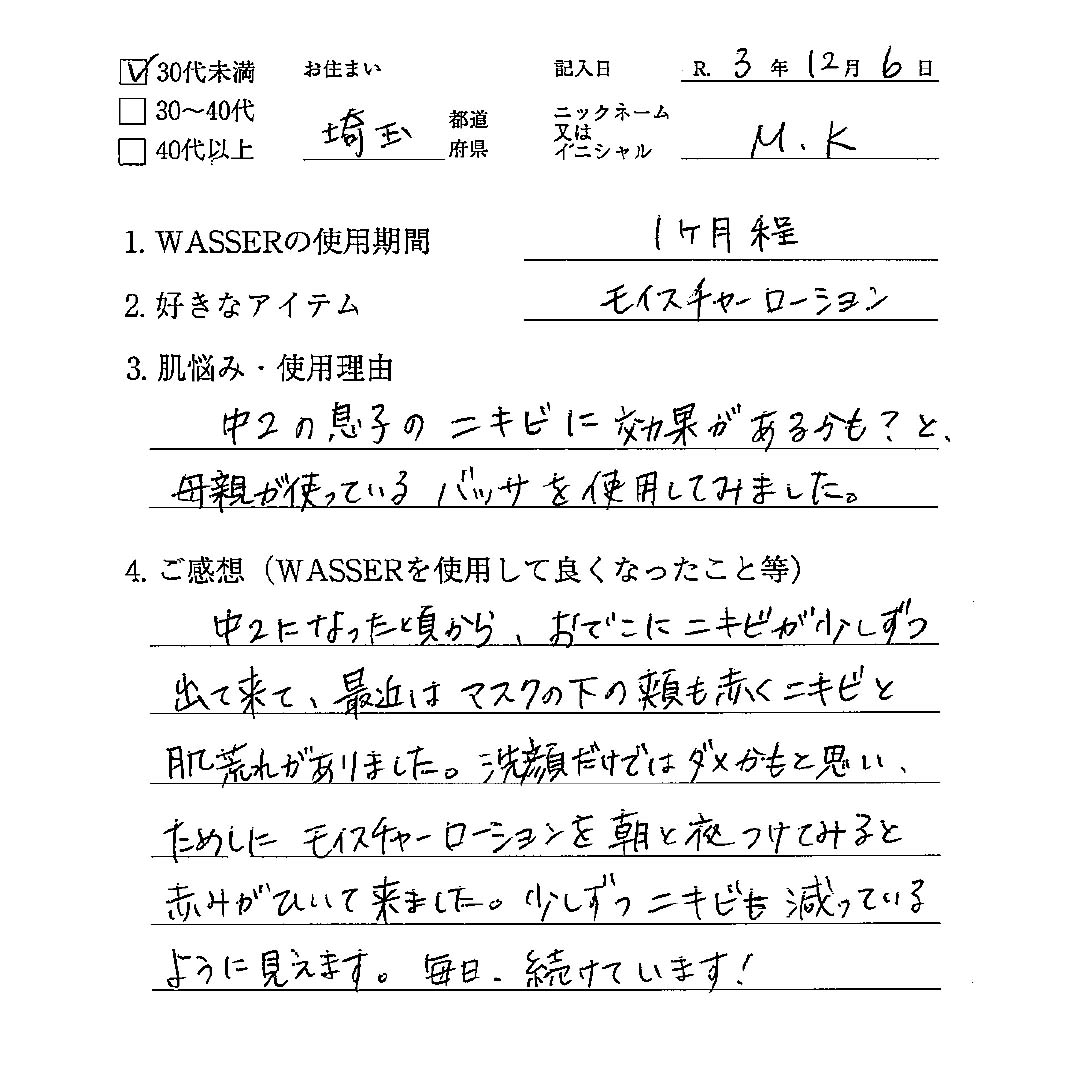 ☑ 30代未満 お住まい 記入日 R. 3 年 12 月 6 日
□ 30〜40代 埼玉 都道府県 ニックネーム又はイニシャル M.K
□ 40代以上
1. WASSERの使用期間 1ヶ月程
2. 好きなアイテム モイスチャーローション
3. 肌悩み・使用理由
中2の息子のニキビに効果があるかも?と、
母親が使っているバッサを使用してみました。
4. ご感想（WASSERを使用して良くなったこと等）
中2になったと頃から、おでこにニキビが少しずつ
出て来て、最近はマスクの下の頬も赤くニキビと
肌荒れがありました。洗顔だけではダメかもと思い、
ためしにモイスチャーローションを朝と夜つけてみると
赤みがひいて来ました。少しずつニキビも減っている
ように見えます。毎日、続けています!